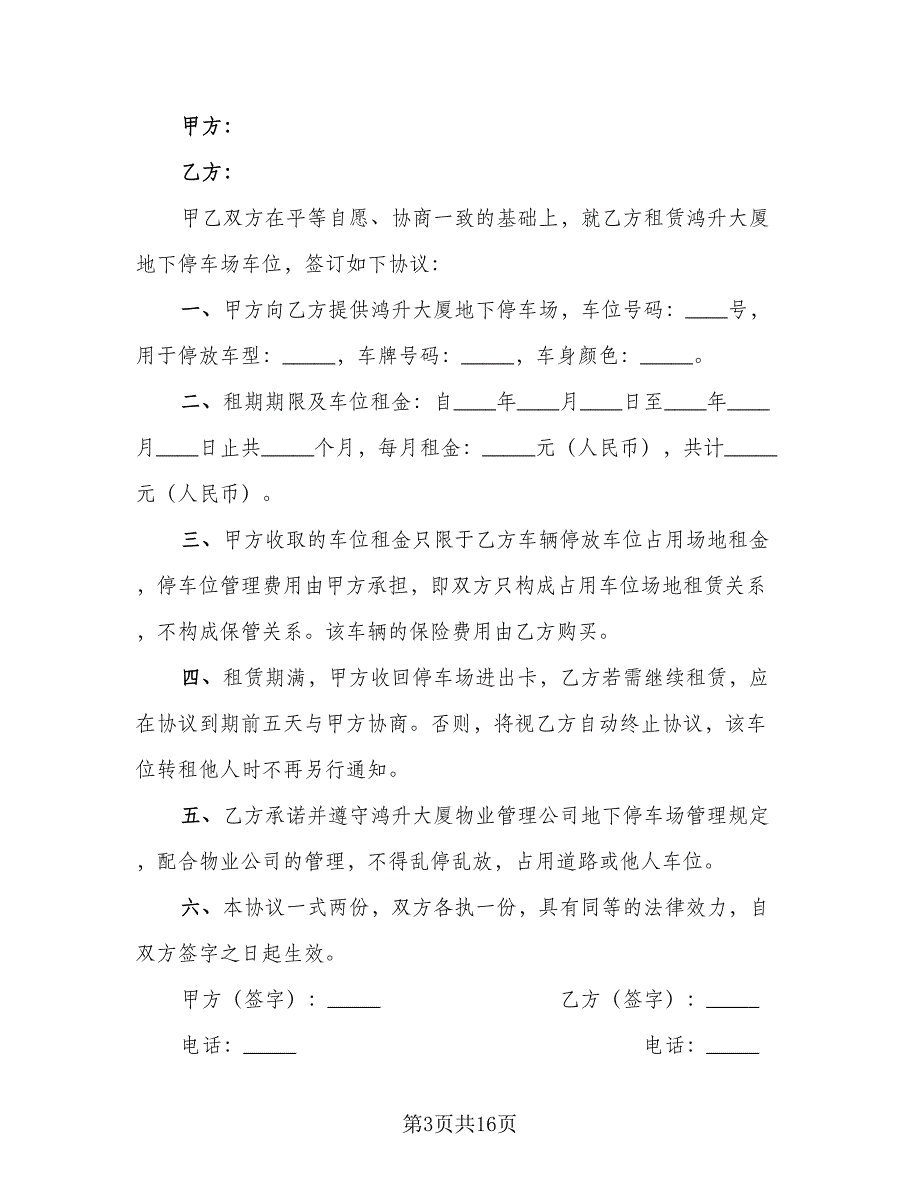 甲方：
乙方：
甲乙双方在平等自愿、协商一致的基础上，就乙方租赁鸿升大厦
地下停车场车位，签订如下协议：
一、甲方向乙方提供鸿升大厦地下停车场，车位号码：____号，
用于停放车型：_____，车牌号码：_____，车身颜色：_____。
二、租期期限及车位租金：自____年____月____日至____年____
月____日止共_____个月，每月租金：_____元（人民币），共计_____
元（人民币）。
三、甲方收取的车位租金只限于乙方车辆停放车位占用场地租金
，停车位管理费用由甲方承担，即双方只构成占用车位场地租赁关系
，不构成保管关系。该车辆的保险费用由乙方购买。
四、租赁期满，甲方收回停车场进出卡，乙方若需继续租赁，应
在协议到期前五天与甲方协商。否则，将视乙方自动终止协议，该车
位转租他人时不再另行通知。
五、乙方承诺并遵守鸿升大厦物业管理公司地下停车场管理规定
，配合物业公司的管理，不得乱停乱放，占用道路或他人车位。
六、本协议一式两份，双方各执一份，具有同等的法律效力，自
双方签字之日起生效。
甲方（签字）：_____ 乙方（签字）：_____
电话：_____ 电话：_____
第3页共16页